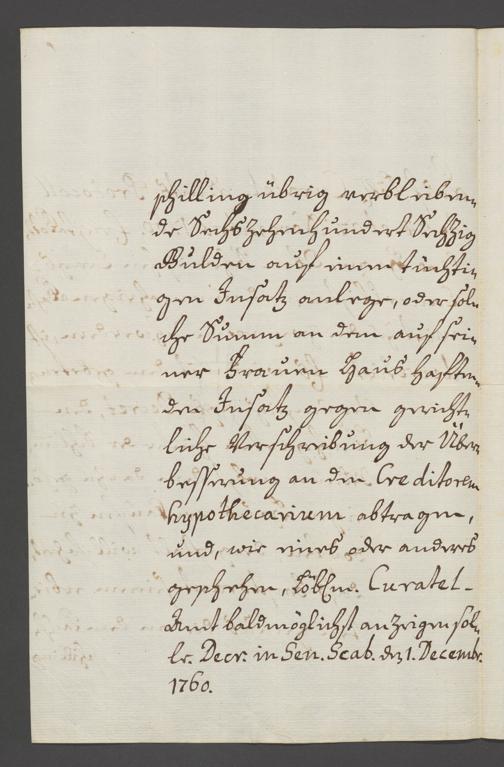 schilling übrig verbleiben-
de Sechszehenhundert Sechzig
Gulden auf einen tüchti-
gen Insatz anlege, oder sol-
che Summ an dem auf sei-
ner Frauen Haus haften-
den Insatz gegen gericht-
liche Verschreibung der Über-
besserung an den Creditorem
hypothecarium abtragen,
und, wie eines oder anderes
geschehen, Löbl. Curatel-
Amt baldmöglichst anzeigen sol-
le. Decr. in Sen. Scab. den 1. Decembr.
1760.